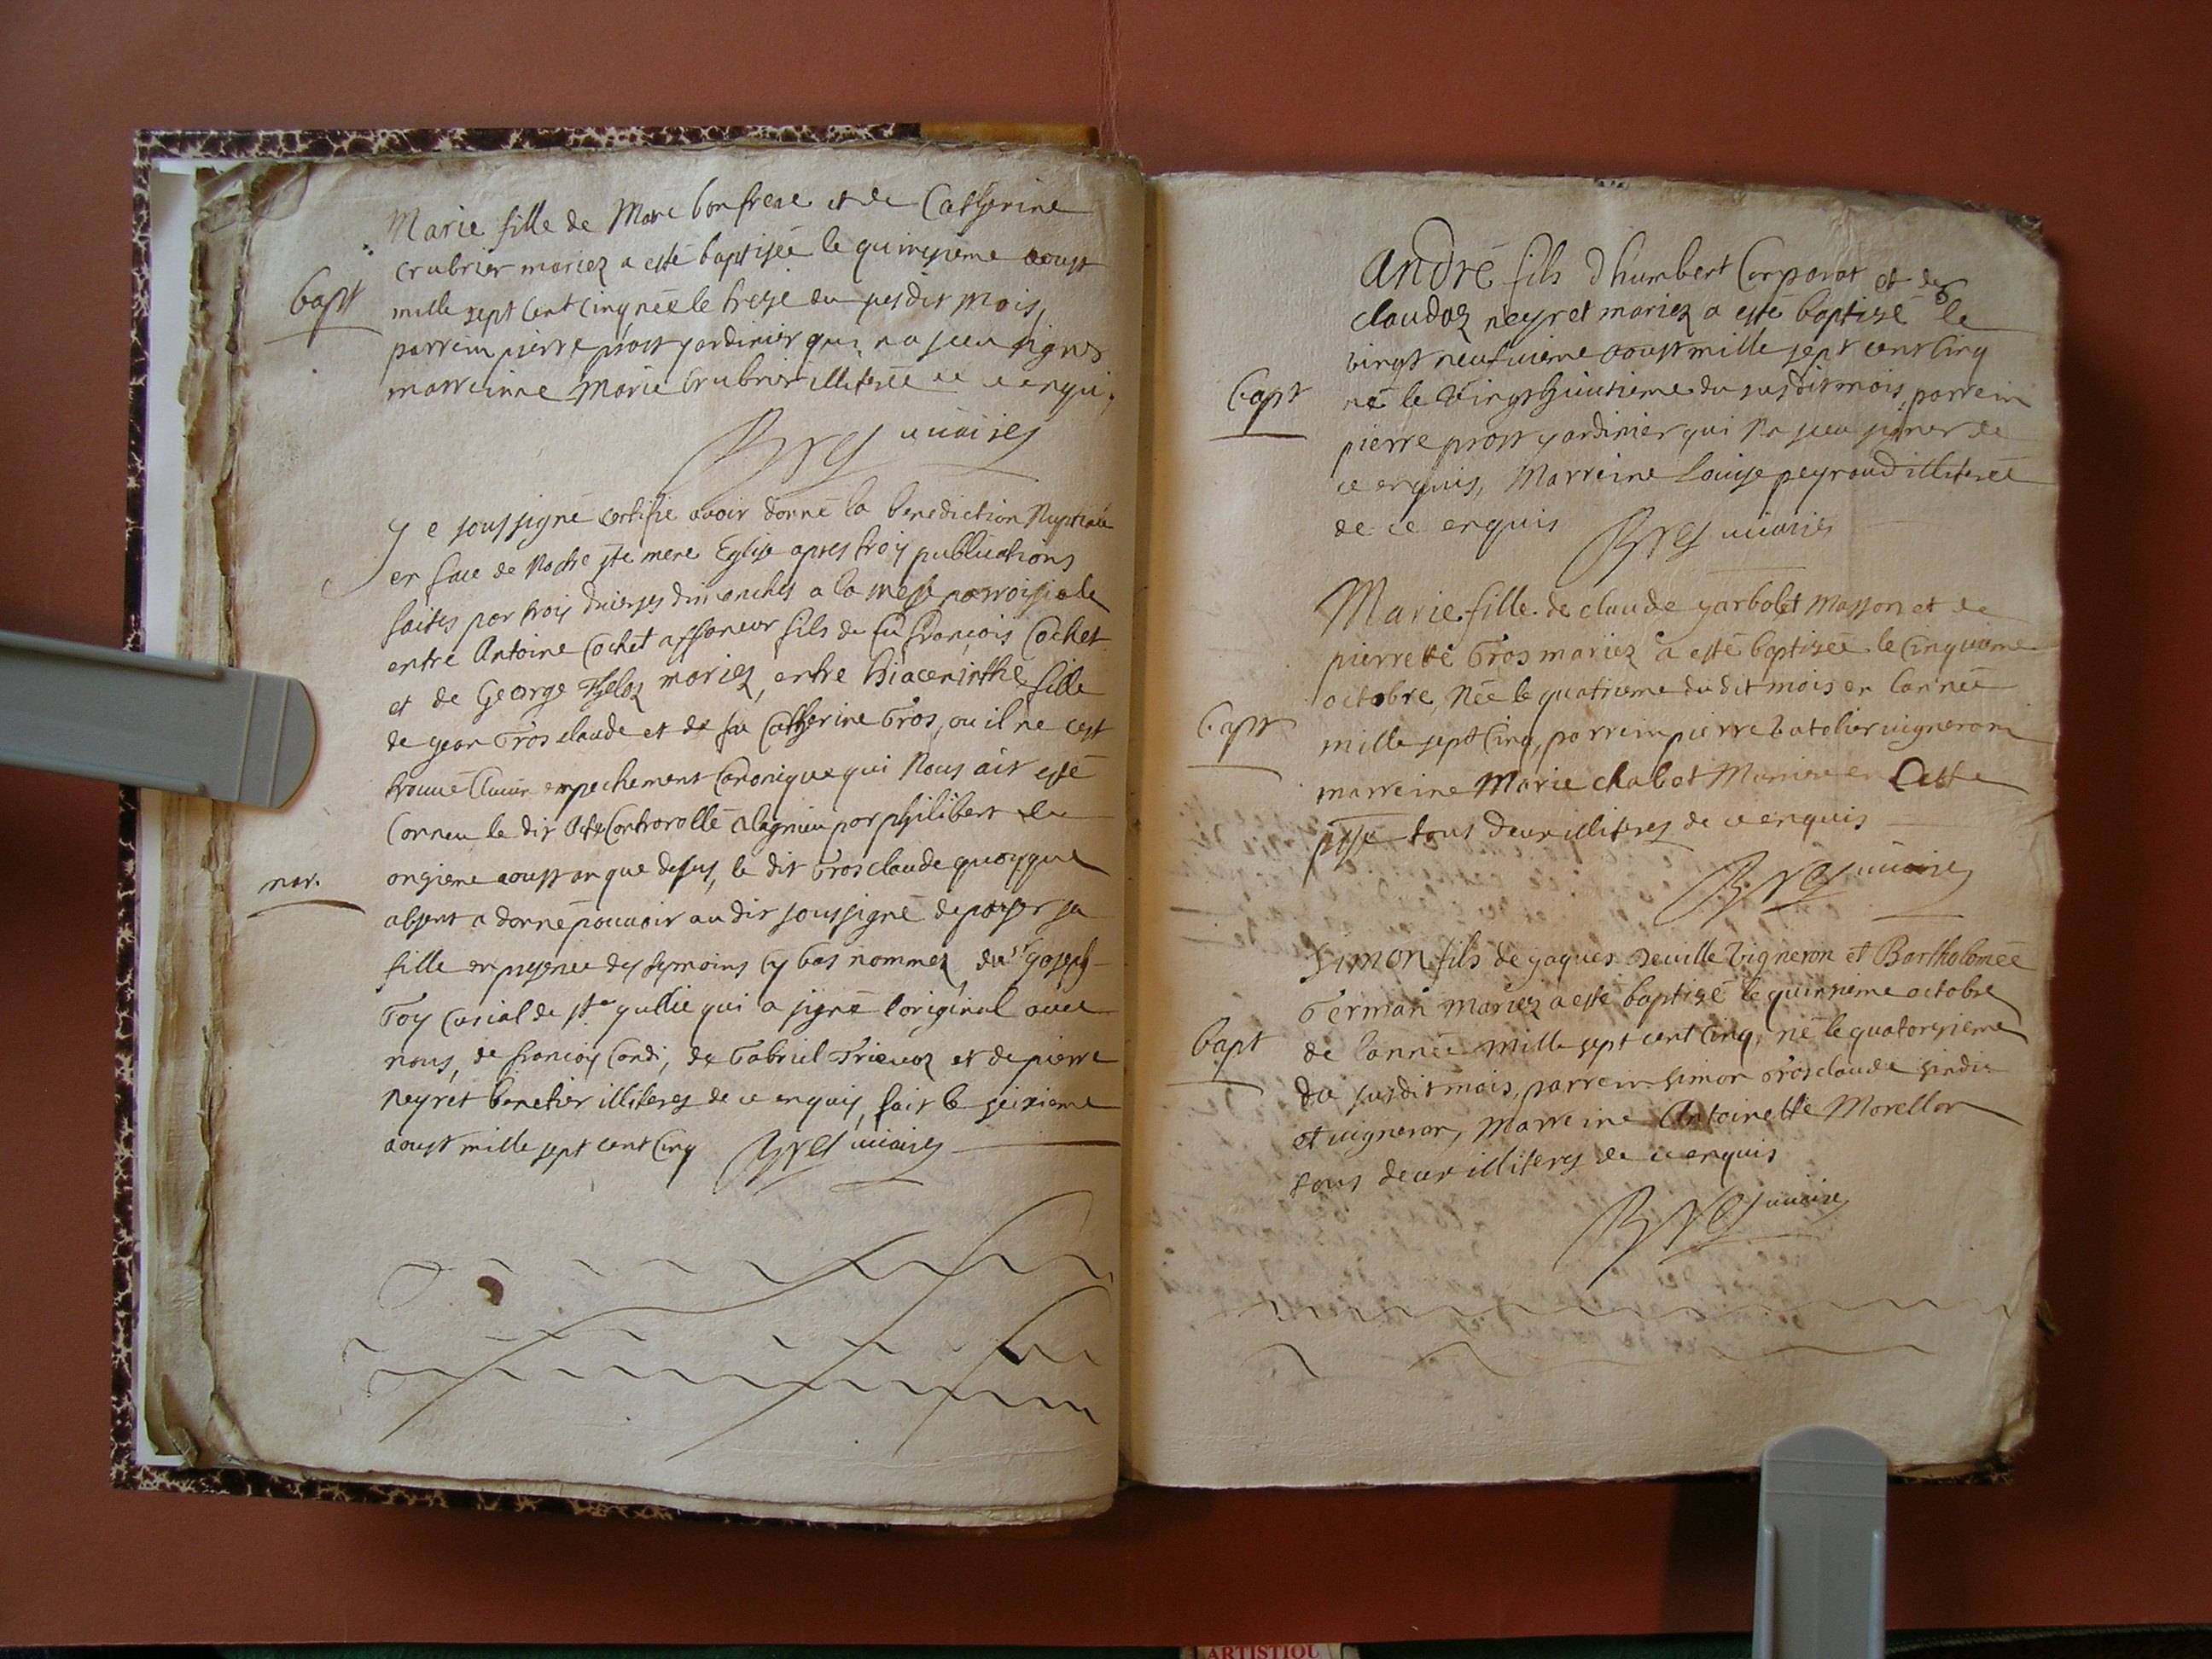 Marie fille de Marc bonfrere et de Catherine
crubrier mariez a esté baptisée le quinzieme aoust
bapt
mille sept cent cinq née le treze du susdit mois,
parrein pierre prost jardinier qui na sceu signer
marreinne Marie Crubrier illiterée de ce enqui.
vicaires
Je soussigné certifie avoir donné la benediction Nuptiale
en face de Nostre ste mere Eglise apres trois publications
faites par trois diverses dimanches a la messe parroissiale
entre Antoine Cochet affaneur fils de fû françois Cochet
et de George Theloz mariez, entre hiaceninthe fille
de jean Grosclaude et de fu Catherine Gros, ou il ne cest
trouvé Aucun empechement Canonique qui Nous ait esté
Connu le dit Acte Controrollé a lagnieu par philibert le
onzieme aoust an que desus, le dit Grosclaude quoyque
mar.
absent a donné pouvoir au dit soussigné depouser sa
fille en presence des temoins cy bas nommez, du sr joseph
Goy curial de ste jullie qui a signé l'original avec
nous, de françois Condi, de Gabriel et de pierre
neyret benetier illiteres de ce enquis, fait le seizieme
aoust mille sept cent cinq vicaires
André fils d'humbert Corporat et de
claudaz neyret mariez a esté baptisé le
vingt neufvieme aoust mille sept cent cinq
bapt
né le vingt huitieme du susdit mois, parrein
pierre prost jardinier qui Na sceu signer de
ce enquis, Marreine Louise peyraud illiterée
de ce enquis vicaires
Marie fille de claude jarbolet Masson et de
pierrette Gros mariez a esté baptisée le cinquieme
octobre, Née le quatrieme du dit mois en l'année
bapt
mille sept Cinq, parrein pierre batolier vigneron
marreine Marie chabot en Cette
psse tous deux illiteres de ce enquis
vicaires
Simon fils de jaques Deville Vigneron et Bartholomée
German mariez a esté baptizé le quinzieme octobre
bapt
de l'année mille sept cent cinq, né le quatorzieme
du susdit mois, parrein simon Grosclaude sindic
et vigneron, marreine Antoinette Morellon
tous deux illiteres de ce enquis
vicaires
ARTISTIQU